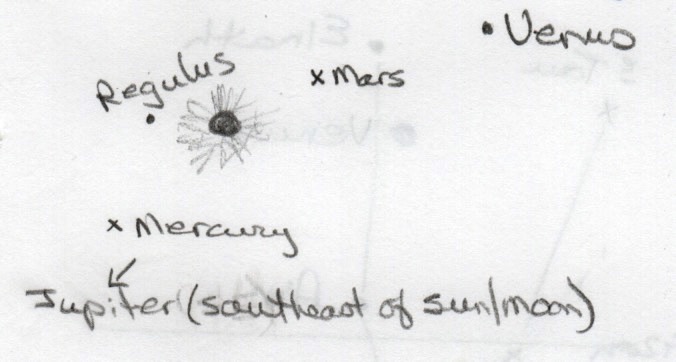 Venus
Regulus
x Mars
x Mercury
Jupiter (southeast of sun/moon)